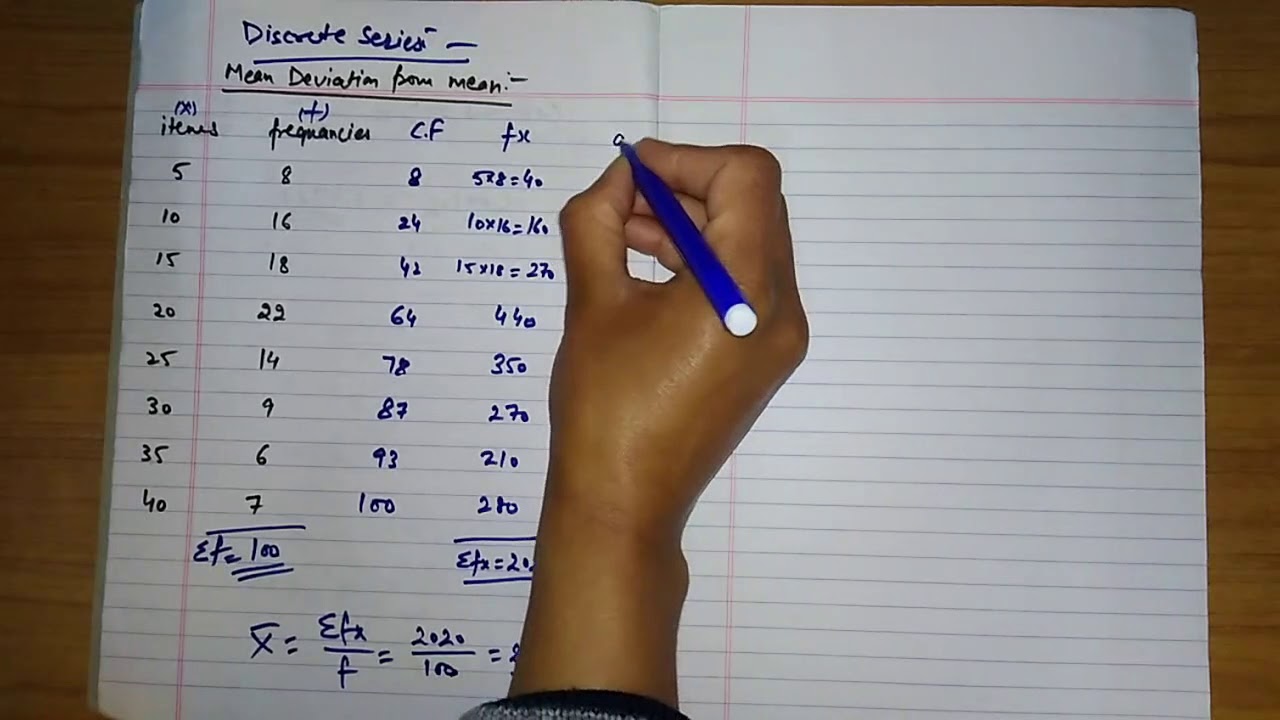 Discrete Series –
Mean Deviation from mean:-
(x) (f)
items frequancies C.F fx
5 8 8 5×8=40
10 16 24 10×16=160
15 18 42 15×18=270
20 22 64 440
25 14 78 350
30 9 87 270
35 6 93 210
40 7 100 280
Σf=100 Σfx=202
X̄ = Σfx/f = 2020/100 =